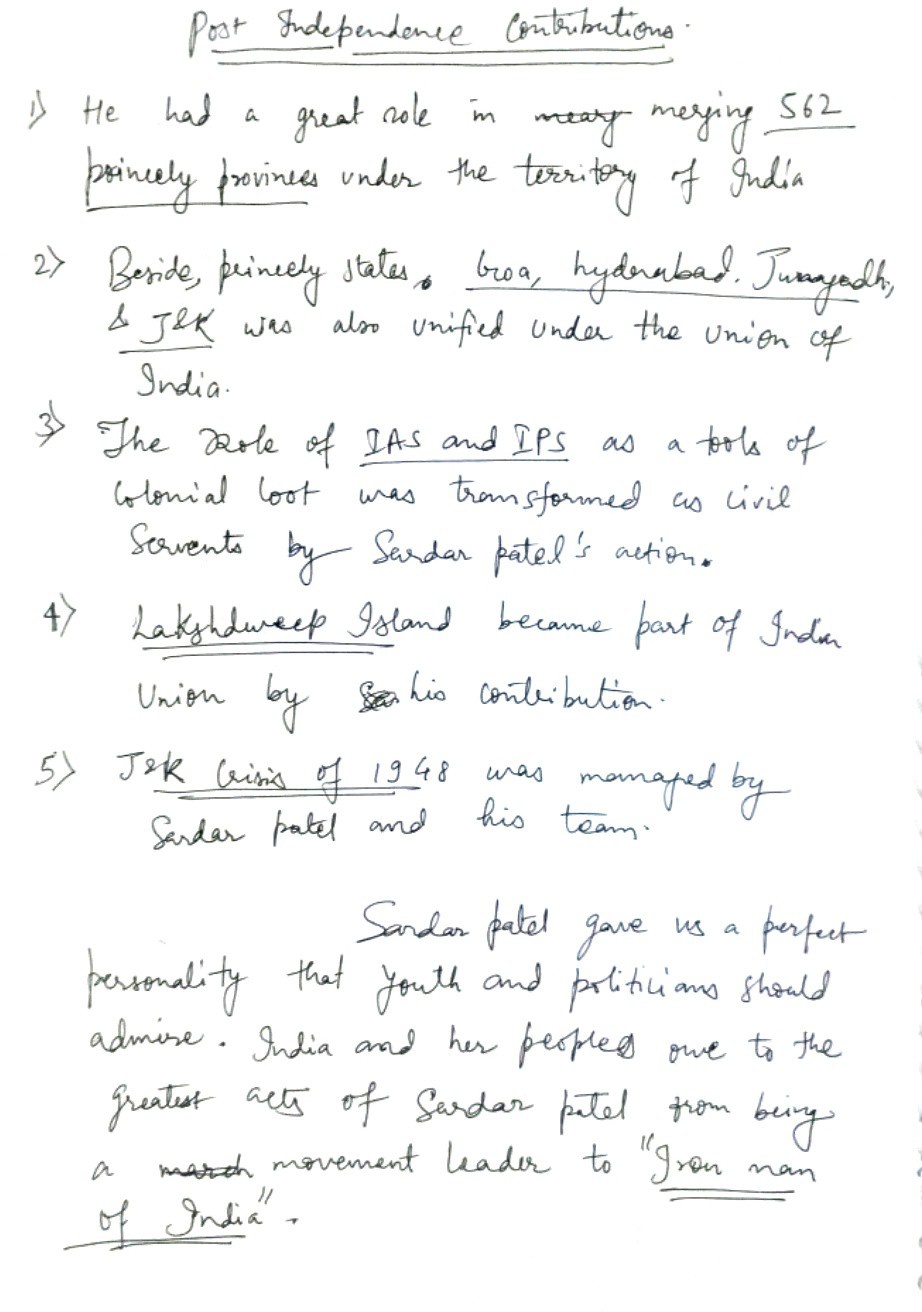 Post Independence Contributions.
1) He had a great role in meary merging 562
princely provinces under the territory of India
2) Beside, princely states, Goa, hyderabad. Junagadh,
& J&K was also unified under the union of
India.
3) The Role of IAS and IPS as a tools of
Colonial loot was transformed as civil
Servents by Sardar patel's action.
4) Lakshdweep Island became part of India
Union by his contribution.
5) J&K Crisis of 1948 was managed by
Sardar patel and his team.
Sardar patel gave us a perfect
personality that youth and politicians should
admire. India and her peoples owe to the
greatest acts of Sardar patel from being
a march movement leader to "Iron man
of India".